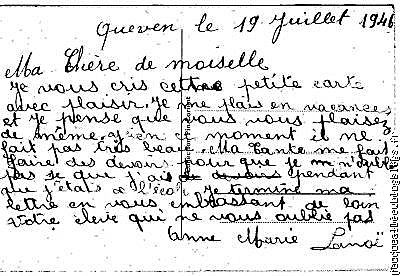 Queven le 19 Juillet 194
Ma Chère de moiselle
Je vous cris cettre petite carte
avec plaisir. Je me plais en vacances
et Je pense que vous vous plaisez
de même, en ce moment il ne
fait pas très beau. Ma tante me fait
faire des devoirs pour que je n'oublie
pas se que j'ai de devoirs pendant
que j'étais a l'école. Je termine ma
lettre en vous embrassant de loin
votre eleve qui ne vous oublie pas
Anne Marie Lanoë